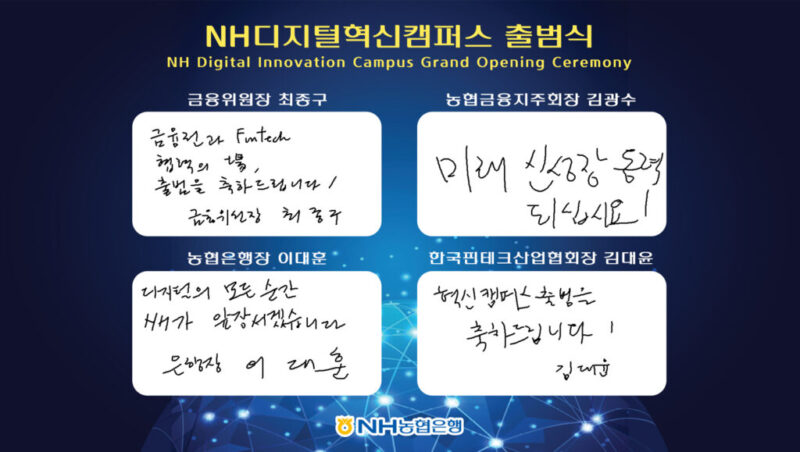 NH디지털혁신캠퍼스 출범식
NH Digital Innovation Campus Grand Opening Ceremony
금융위원장 최종구
금융권과 Fintech
협력의 場,
출범을 축하드립니다!
금융위원장 최종구
농협금융지주회장 김광수
미래 신성장 동력
되십시요!
농협은행장 이대훈
디지털의 모든 순간
NH가 앞장서겠습니다
은행장 이대훈
한국핀테크산업협회장 김대윤
혁신캠퍼스 출범을
축하드립니다!
김대윤
NH농협은행